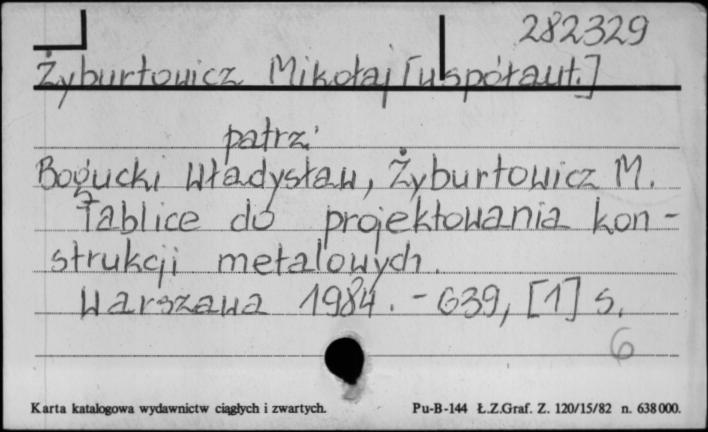 282329
Żyburtowicz Mikołaj [współaut.]
patrz:
Bogucki Władysław, Żyburtowicz M.
Tablice do projektowania kon-
strukcji metalowych.
Warszawa 1984. - 639, [1] s.
6
Karta katalogowa wydawnictw ciągłych i zwartych. Pu-B-144 Ł.Z.Graf. Z. 120/15/82 n. 638000.